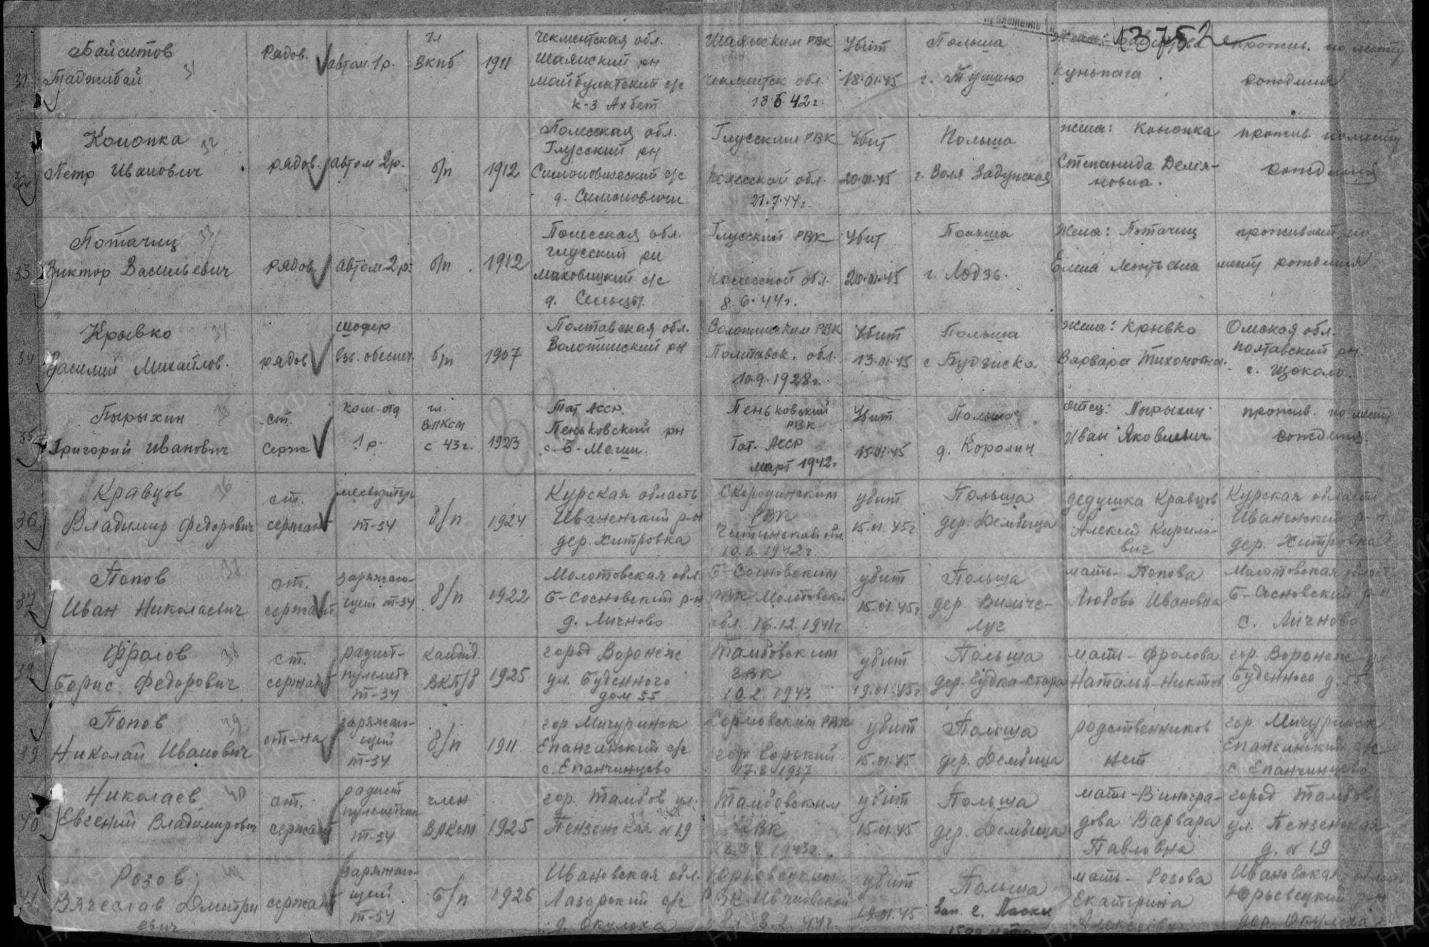 3752
31
Байситов
Таджибай
рядов.
автом. 1 р.
чл
ВКПб
1911
Чемкентская обл.
Шаянский рн
Майбулакский с/с
к-з Ахбет
Шаянским РВК
Чемкентск обл.
18.6.42 г.
Убит
18.01.45
Польша
г. Тушино
против. по месту
рождения
32
Конопка
Петр Иванович
рядов.
автом 2 р.
б/п
1912
Полесская обл.
Глусский рн
Симоновический с/с
д. Симоновичи
Глусским РВК
Полесской обл.
21.7.44 г.
Убит
20.01.45
Польша
г. Воля Задунская
жена: Конопка
Степанида Демья-
новна.
прожив по месту
рождения
33
Потачиц
Виктор Васильевич
рядов
автом. 2 р.
б/п
1912
Полесская обл.
Глусский рн
д. Сельцы
Глусский РВК
Полесской обл.
8.6.44 г.
Убит
20.01.45
Польша
г. Лодзь.
Жена: Потачиц
Елена Леонтьевна
проживает по
месту рождения
34
Крывко
Василий Михайлов.
рядов
шофер
б/п
1907
Полтавская обл.
Полтавск. обл.
10.9.1928 г.
Убит
13.01.45
Польша
с Будзиско
жена: Крывко
Варвара Тихоновна.
Омская обл.
Полтавский рн
35
Пырыхин
Григорий Иванович
ст.
серж
ком-отд
1 р.
чл.
ВЛКСМ
с 43 г.
1923
Тат АССР.
Теньковский рн
Теньковский
РВК
Тат. АССР
март 1942 г
Убит
15.01.45
Польша
д. Королин
отец: Пырыхин
Иван Яковлевич
прожив. по месту
рождения.
36
Кравцов
Владимир Федорович
ст.
сержант
мехводитель
Т-34
б/п
1924
Курская область
Иваненский р-н
дер. Хитровка
Скороднинским
РВК
убит
15.01.45 г
Польша
дер. Дембица
дедушка Кравцов
Алексей Кирило-
вич
Курская область
Иваненский р-н
дер. Хитровка
37
Попов
Иван Николаевич
ст.
сержант
заряжаю-
щий Т-34
б/п
1922
Молотовская обл
Б-Сосновский р-н
д. Личново
Б-Сосновским
РВК Молотовской
обл. 16.12.1941 г
убит
15.01.45 г
Польша
луг
мать- Попова
Любовь Ивановна
Молотовская область
Б-Сосновский р-н
с. Личново
Фролов
Борис Федорович
ст.
сержант
радист-
пулеметч
Т-34
кандид.
ВКП/б
1925
город Воронеж
ул. Буденного
дом 55
Тамбовским
ГВК
10.2.1943
убит
19.01.45 г
Польша
дер. Будка-Стара
мать- Фролова
Наталья-Никтов
гор. Воронеж ул
Буденного д. 55
Попов
Николай Иванович
ст-на
заряжаю-
щий
Т-34
б/п
1911
гор. Мичуринск
Епанчинский с/с
с. Епанчинцево
убит
15.01.45
Польша
дер. Дембица
родственников
нет
гор. Мичуринск
Епанчинский с/с
с. Епанчинцево
40
Николаев
Евгений Владимирович
ст.
сержант
радист
пулеметчик
Т-34
член
ВЛКСМ
1925
гор. Тамбов ул.
Пензенская N 19
Тамбовским
ГВК
убит
15.01.45
Польша
дер. Дембица
мать- Виногра-
дова Варвара
Павловна
город Тамбов
ул. Пензенская
д. N 19
41
Розов
Вячеслав Дмитри
евич
сержант
заряжаю-
щий
Т-34
б/п
1926
Ивановская обл.
Лазорский с/с
д. Окулоха
Юрьевецким
РВК Ивановской
обл. 8.2.44 г
убит
Польша
мать- Розова
Екатерина
Алексеевн
Ивановская область
Юрьевецкий р-н
дер. Окулоха